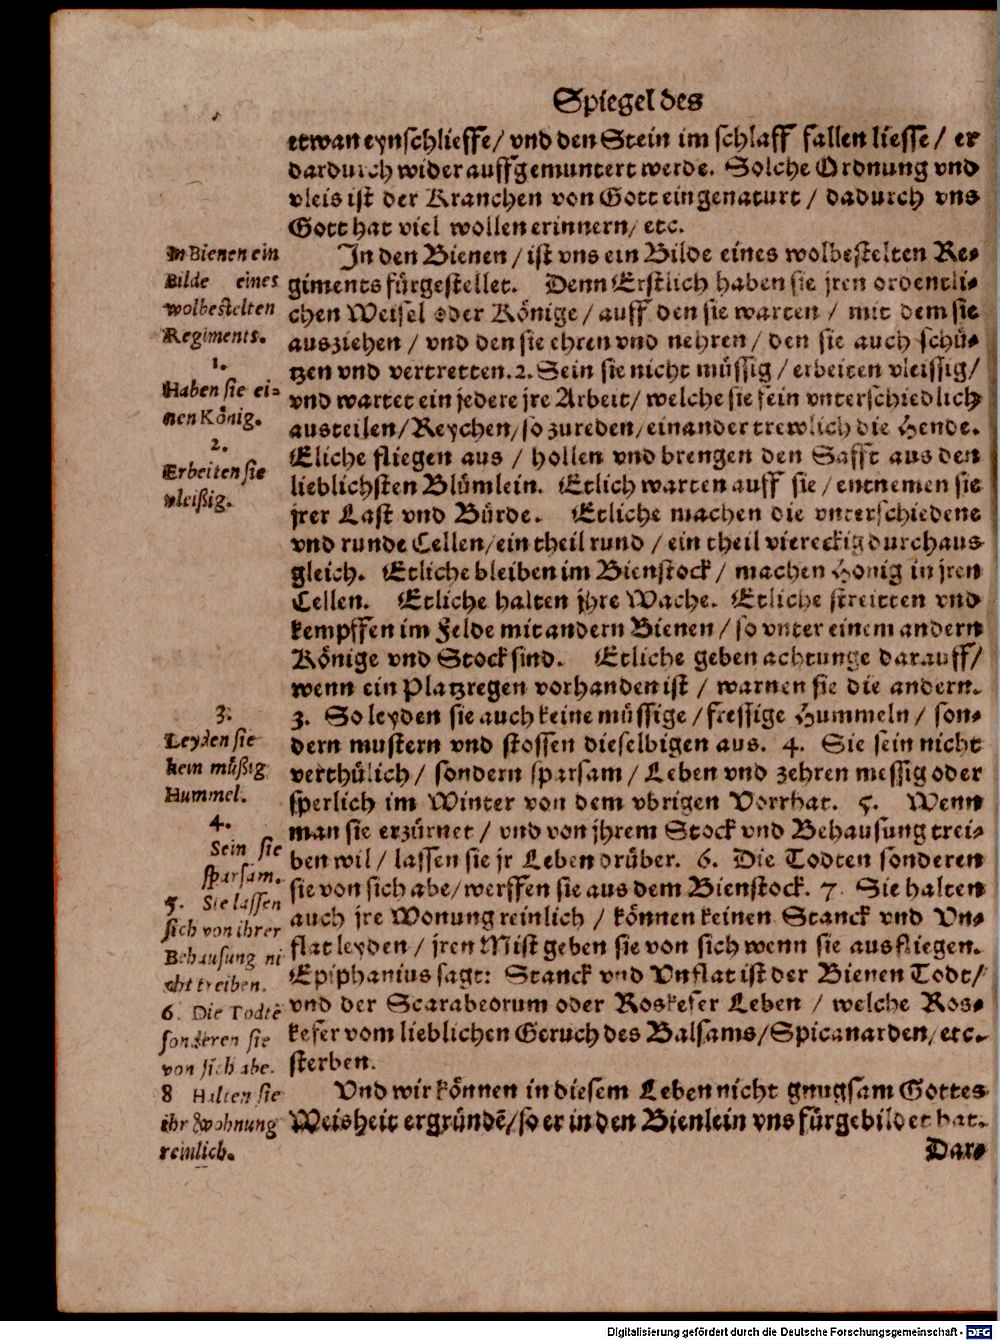 Spiegel des
etwan eynschlieffe/ vnd den Stein im schlaff fallen liesse / er
dardurch wider auffgemuntert werde. Solche Ordnung vnd
vleis ist der Kranchen von Gott eingenaturt / dadurch vns
Gott hat viel wollen erinnern/ etc.
In den Bienen / ist vns ein Bilde eines wolbestelten Re-
giments fürgestellet. Denn Erstlich haben sie jren ordentli-
chen Weisel oder Könige / auff den sie warten / mit dem sie
ausziehen / vnd den sie ehren vnd nehren / den sie auch schü-
tzen vnd vertretten. 2. Sein sie nicht müssig / erbeiten vleissig/
vnd wartet ein jedere jre Arbeit/ welche sie fein vnterschiedlich
austeilen/ Reychen/ so zureden/ einander trewlich die Hende.
Etliche fliegen aus / hollen vnd brengen den Safft aus den
lieblichsten Blümlein. Etlich warten auff sie / entnemen sie
jrer Last vnd Bürde. Etliche machen die vnterschiedene
vnd runde Cellen/ ein theil rund / ein theil viereckig durchaus
gleich. Etliche bleiben im Bienstock / machen Honig in jren
Cellen. Etliche halten jhre Wache. Etliche streitten vnd
kempffen im Felde mit andern Bienen / so vnter einem andern
Könige vnd Stock sind. Etliche geben achtunge darauff/
wenn ein Platzregen vorhanden ist / warnen sie die andern.
3. So leyden sie auch keine müssige / fressige Hummeln / son-
dern mustern vnd stossen dieselbigen aus. 4. Sie sein nicht
verthülich / sondern sparsam / Leben vnd zehren messig oder
sperlich im Winter von dem vbrigen Vorrhat. 5. Wenn
man sie erzürnet / vnd von jhrem Stock vnd Behausung trei-
ben wil / lassen sie jr Leben drüber. 6. Die Todten sonderen
sie von sich abe/ werffen sie aus dem Bienstock. 7. Sie halten
auch jre Wonung reinlich / können keinen Stanck vnd Vn-
flat leyden / jren Mist geben sie von sich wenn sie ausfliegen.
Epiphanius sagt: Stanck vnd Vnflat ist der Bienen Todt/
vnd der Scarabeorum oder Roskefer Leben / welche Ros-
kefer vom lieblichen Geruch des Balsams/ Spicanarden/ etc.
sterben.
Vnd wir können in diesem Leben nicht gnugsam Gottes
Weisheit ergründē/ so er in den Bienlein vns fürgebildet hat.
Dar-
In Bienen ein
Bilde eines
wolbestelten
Regiments.
1.
Haben sie ei-
nen König.
2.
Erbeiten sie
vleißig.
3.
Leyden sie
kein müßig
Hummel.
4.
Sein sie
sparsam.
5. Sie lassen
sich von ihrer
Behausung ni
cht treiben.
6. Die Todtē
sonderen sie
von sich abe.
8 Halten sie
ihr Wohnung
reinlich.
Digitalisierung gefördert durch die Deutsche Forschungsgemeinschaft - DFG